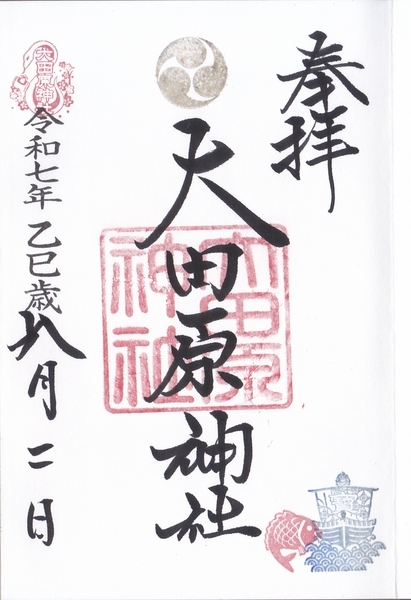 奉拝
大田原神社
大田原
神社
令和七年 乙巳歳 八月二日